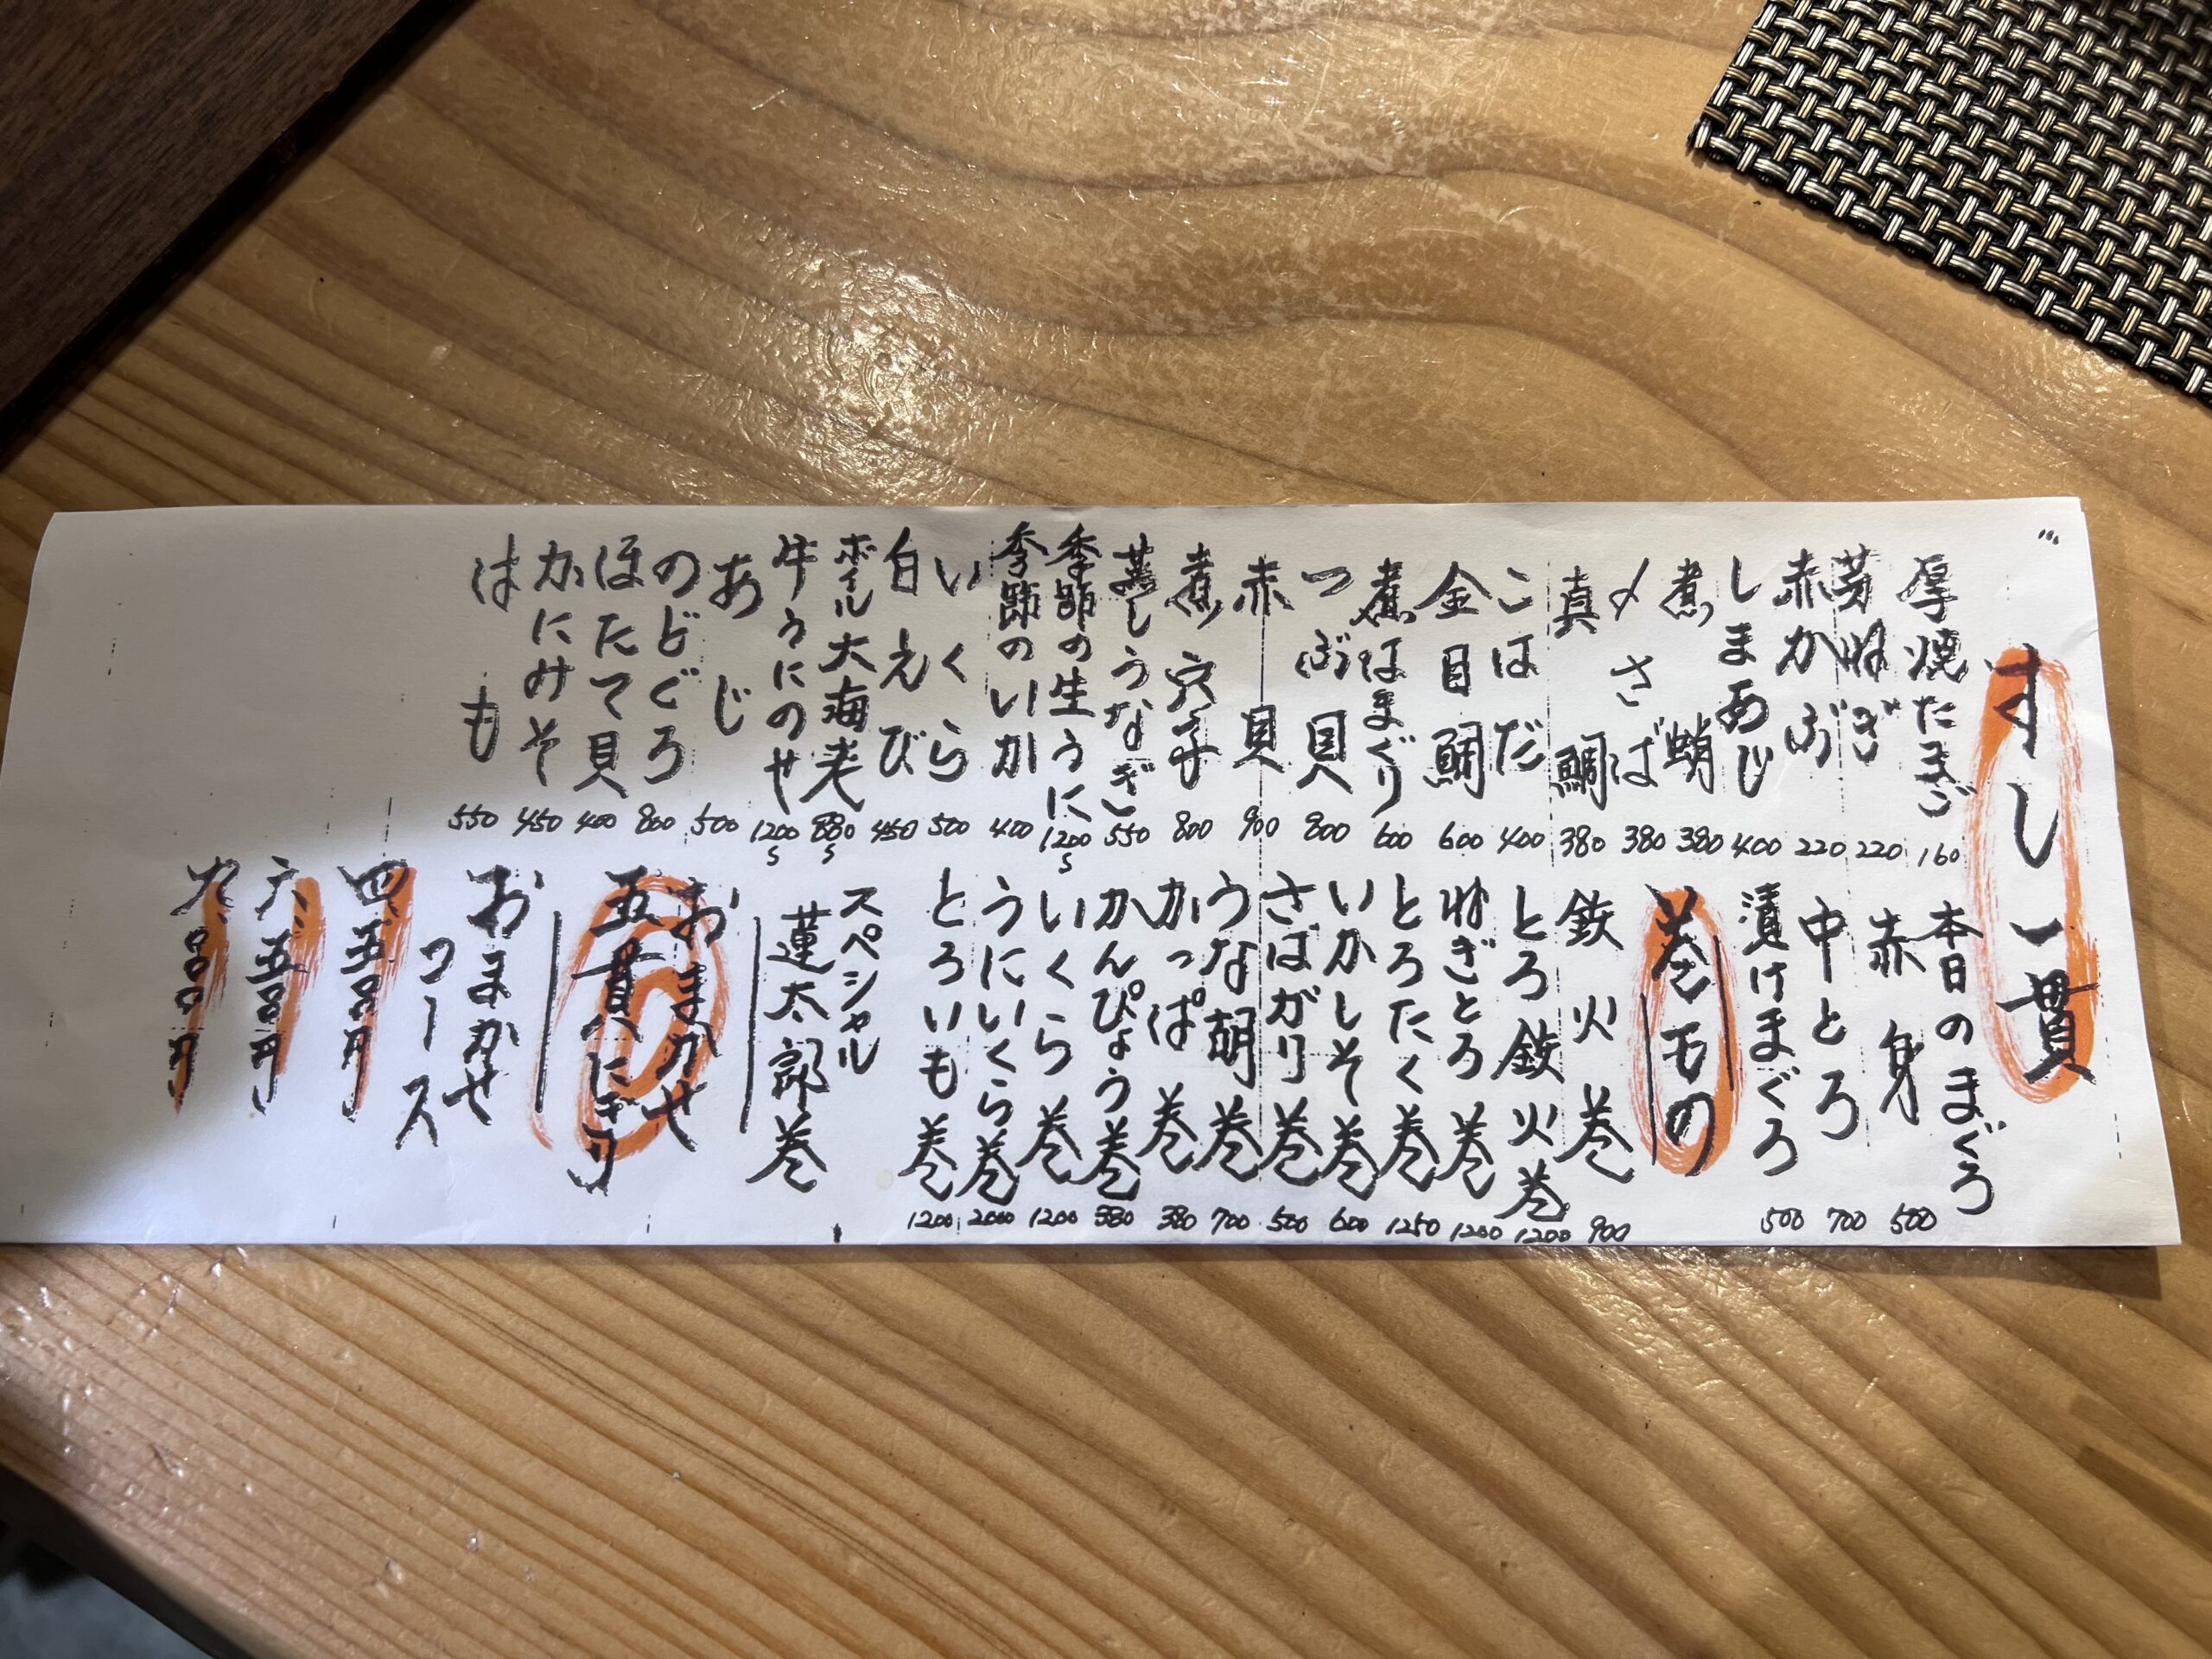 すし一貫
厚焼たまご 160
芽ねぎ 220
赤かぶ 220
しまあじ 400
煮蛸 380
〆さば 380
真鯛 380
こはだ 400
金目鯛 600
煮はまぐり 600
つぶ貝 800
赤貝 900
煮穴子 800
蒸しうなぎ 550
季節の生うに 1200〜
季節のいか 400
いくら 500
白えび 450
ボイル大海老 880〜
牛うにのせ 1200〜
あじ 500
のどぐろ 800
ほたて貝 400
かにみそ 450
はも 550
本日のまぐろ
赤身 500
中とろ 700
漬けまぐろ 500
巻もの
鉄火巻 900
とろ鉄火巻 1200
ねぎとろ巻 1200
とろたく巻 1250
いかしそ巻 600
さばガリ巻 500
うな胡巻 700
かっぱ巻 380
かんぴょう巻 380
いくら巻 1200
うにいくら巻 2000
とろいも巻 1200
スペシャル
蓮太郎巻
おまかせ
五貫にぎり
おまかせ
コース
四、五〇〇円
六、五〇〇円
九、〇〇〇円